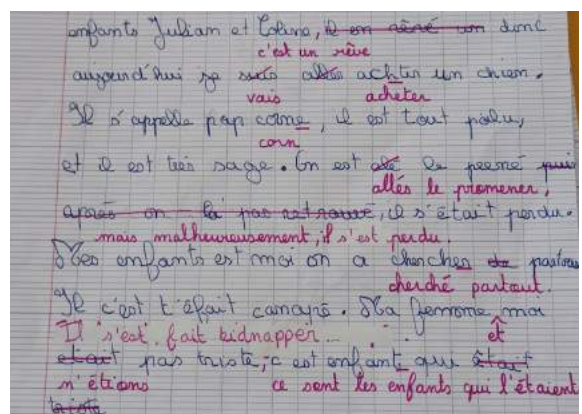 enfants Julian et Coline, il en rêvé un donc
c'est un rêve
aujourd'hui je suis allé achtir un chien.
vais acheter
Il s'appelle pop corne, il est tout poilu,
corn
et il est très sage. On est alé le peemé puis
allés le promener,
après on la pas retrouvé, il s'était perdu.
mais malheureusement, il s'est perdu.
Mes enfants est moi on a cherches de partous
cherché partout.
Il c'est t'éfait canapé. Ma femme moi
Il s'est fait kidnapper... et
etait pas triste, c est enfant qui était
n'étions ce sont les enfants qui l'étaient
triste